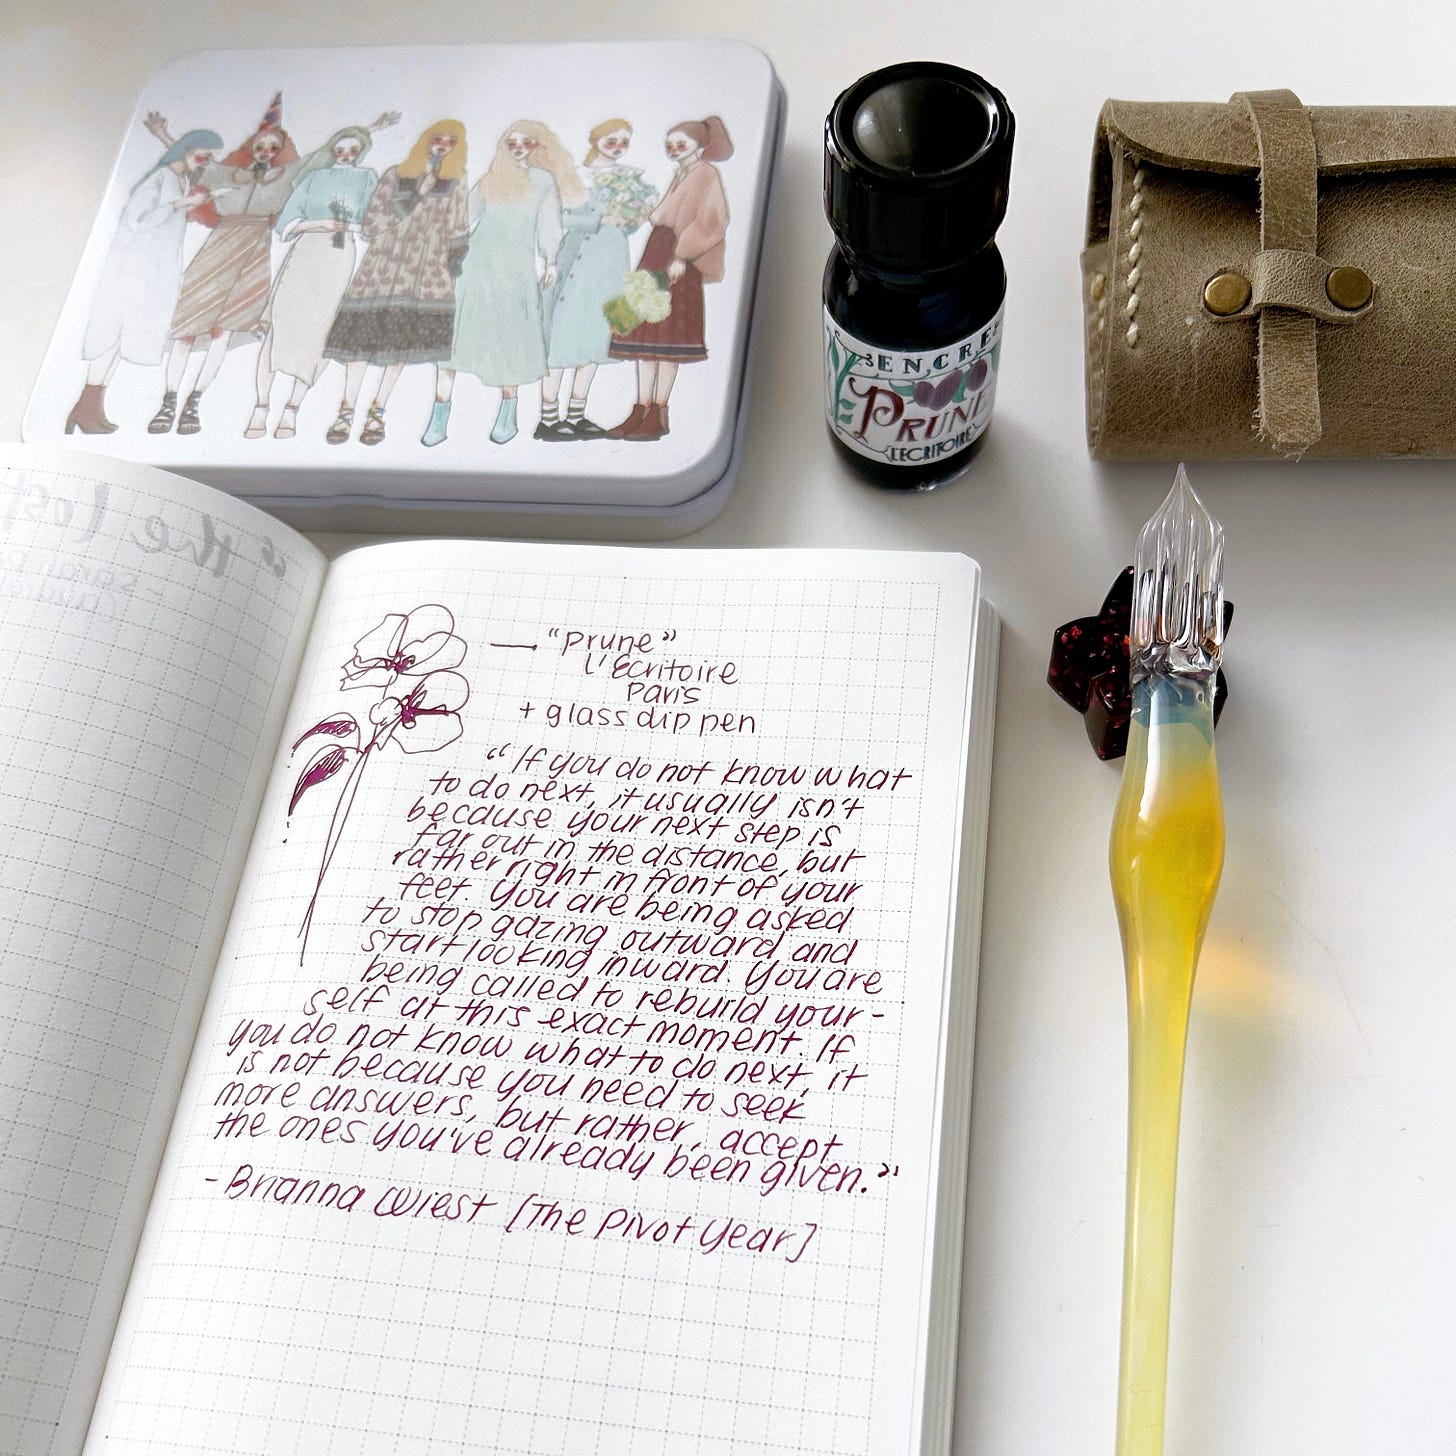 ENCRE
PRUNE
L'ECRITOIRE
"Prune"
L'Ecritoire
Paris
+ glass dip pen
"If you do not know what
to do next, it usually isn't
because your next step is
far out in the distance, but
rather right in front of your
feet. You are being asked
to stop gazing outward and
start looking inward. You are
being called to rebuild your-
self at this exact moment. If
you do not know what to do next, it
is not because you need to seek
more answers, but rather, accept
the ones you've already been given."
- Brianna Wiest [The Pivot Year]